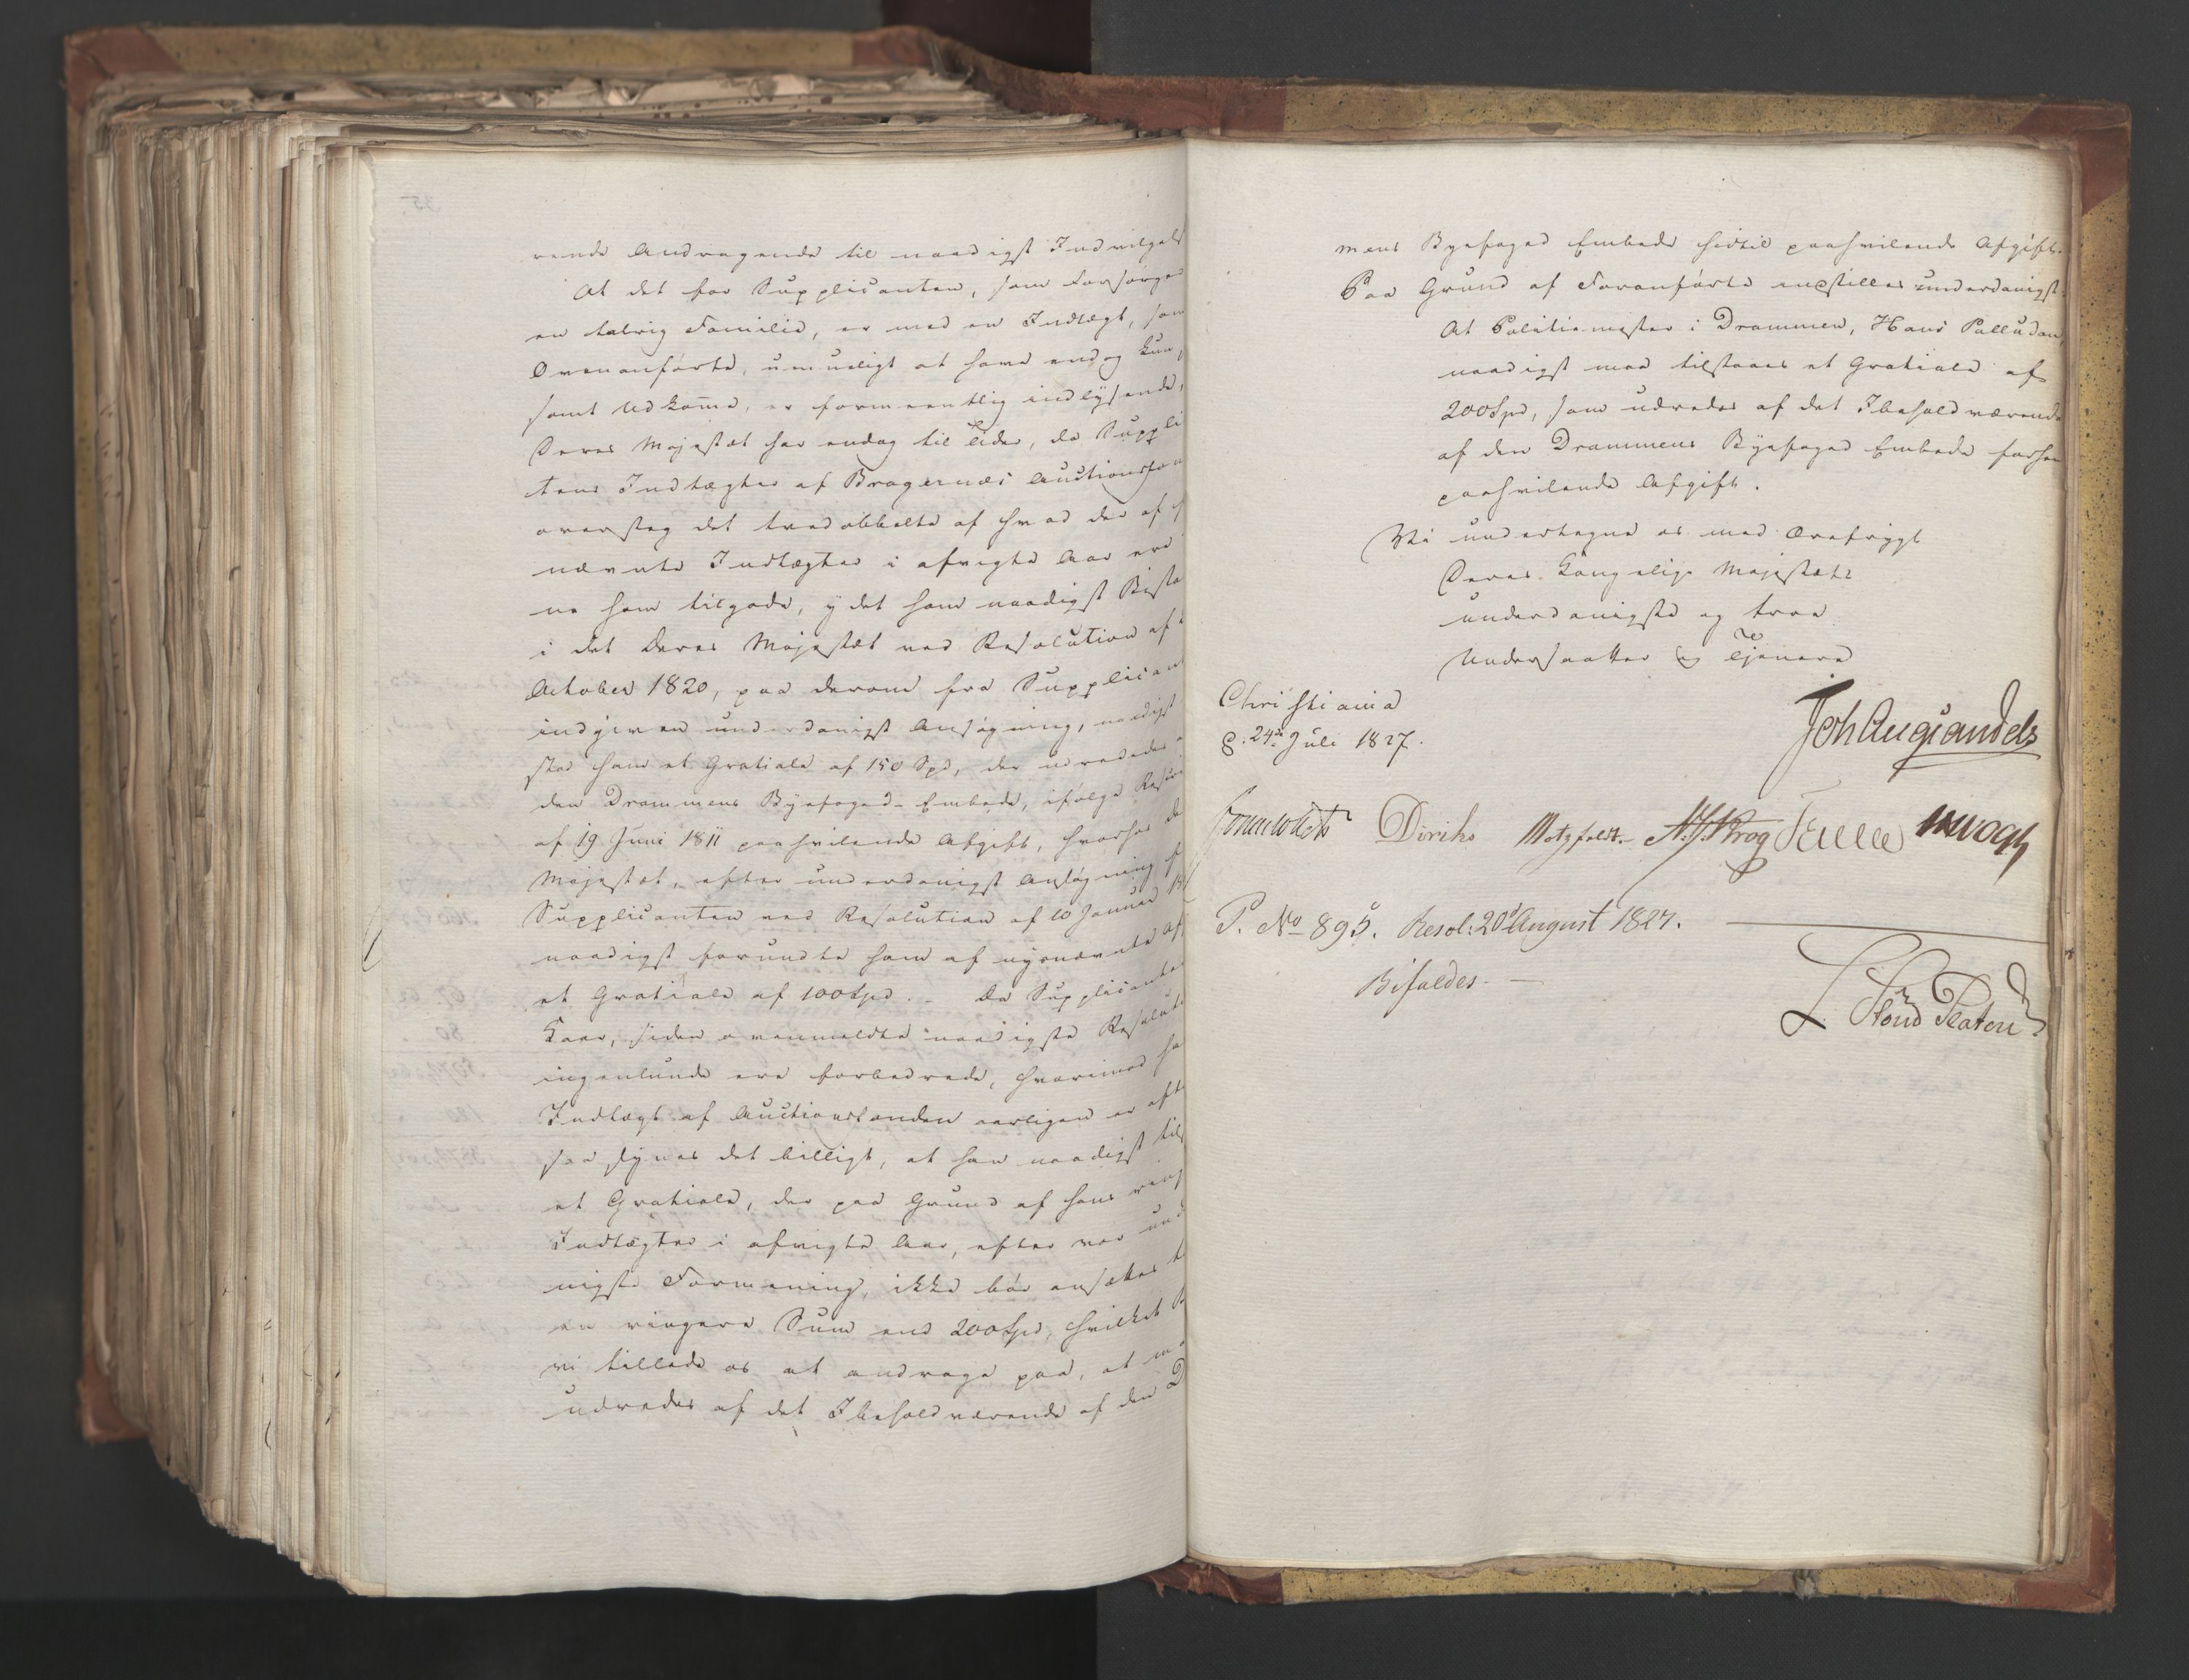 rende Andragende til naadigst Indvilgels
At det for Supplicanten, som Forsørger
en talrig Familie, er med en Indtægt, som
Ovenanførte, umueligt at have endog kun
somt Udkomme, er formeentlig indlysende,
Deres Majestæt har endog til Tider, da Suppli
tens Indtægter af Bragernæs Auctionsfor
oversteg det tredobbelte af hvad der af
nævnte Indtægter i afvigte Aar ere
ne ham tilgode, ydet ham naadigst Bista
i det Deres Majestæt ved Resolution af
October 1820, paa derom fra Supplican
indgiven underdanigst Ansøgning, naadigst
stod ham et Gratiale af 150 Spd, der udrededes
den Drammens Byefoged-Embede, ifølge Rescri
af 19 Juni 1811 paahvilende Afgift, hvorhos De
Majestæt, efter underdanigst Ansøgning af
Supplicanten ved Resolution af 10 Januar 18
naadigst forundte ham af nysnævnte Af
et Gratiale af 100 Spd. - Da Supplicanten
Kaar, siden ovenmeldte naadigste Resolut
ingenlunde ere forbedrede, hvorimod ha
Indtægt af Auctionsfonden aarligen er aft
saa synes det billigt, at han naadigst tils
et Gratiale, der paa Grund af hans ring
Indtægter i afvigte Aar, efter vor und
nigste Formening, ikke bør ansættes t
en ringere Sum end 200 Spd, hvilket B
vi tillade os at andrage paa, at m
udredes af det Ibeholdværende af den D
mens Byefoged Embede hidtil paahvilende Afgift.
Paa Grund af Foranførte indstilles underdanigst:
At Politiemester i Drammen, Hans Palludan,
naadigst maa tilstaaes et Gratiale af
200 Spd, som udredes af det Ibeholdværende
af den Drammens Byefoged Embede forhen
paahvilende Afgift.
Vi undertegne os med Ærefrygt
Deres Kongelige Majestæts
underdanigste og troe
Undersaatter og Tjenere
Christiania
d: 24de Juli 1827.
Joh Aug Sandels
Sommerhielm Diriks Motzfeldt. A. J. Krog
P. No 895. Resol: 20d August 1827.
Bifaldes. —
Platen